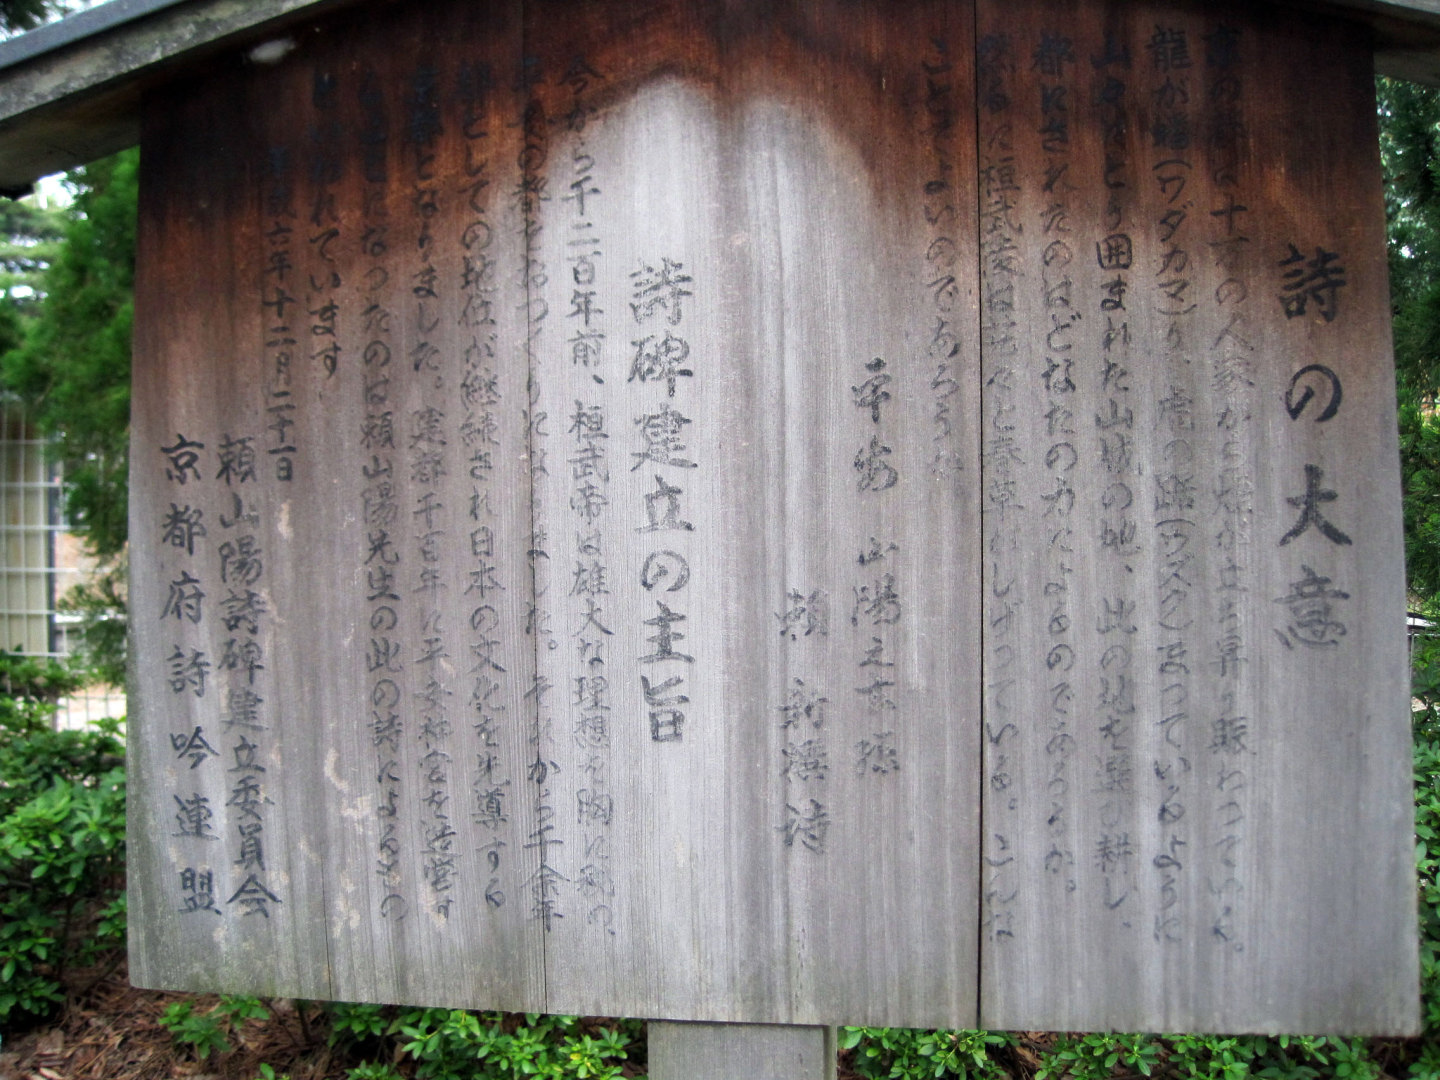 詩の大意
京の都は十万の人家から煙が立ち昇り賑わっている。
龍が蟠(ワダカマ)り、虎の踞(ウズク)まっているように
山々にとり囲まれた山城の地、此の地を選び耕し、
都にされたのはどなたの力によるのであろうか。
然るに桓武陵は茫々と春草がしげっている。こんな
ことでよいのであろうか
平安 山陽之玄孫
頼 新 詩
詩碑建立の主旨
今から千二百年前、桓武帝は雄大な理想を胸に秘め、
平安の都をおつくりになりました。それから千余年
都としての地位が継続され日本の文化を先導する
京都となりました。建都千百年に平安神宮を造営す
ることになつたのは頼山陽先生の此の詩によるもの
と云われています
六年十二月二十一日
頼山陽詩碑建立委員会
京都府詩吟連盟